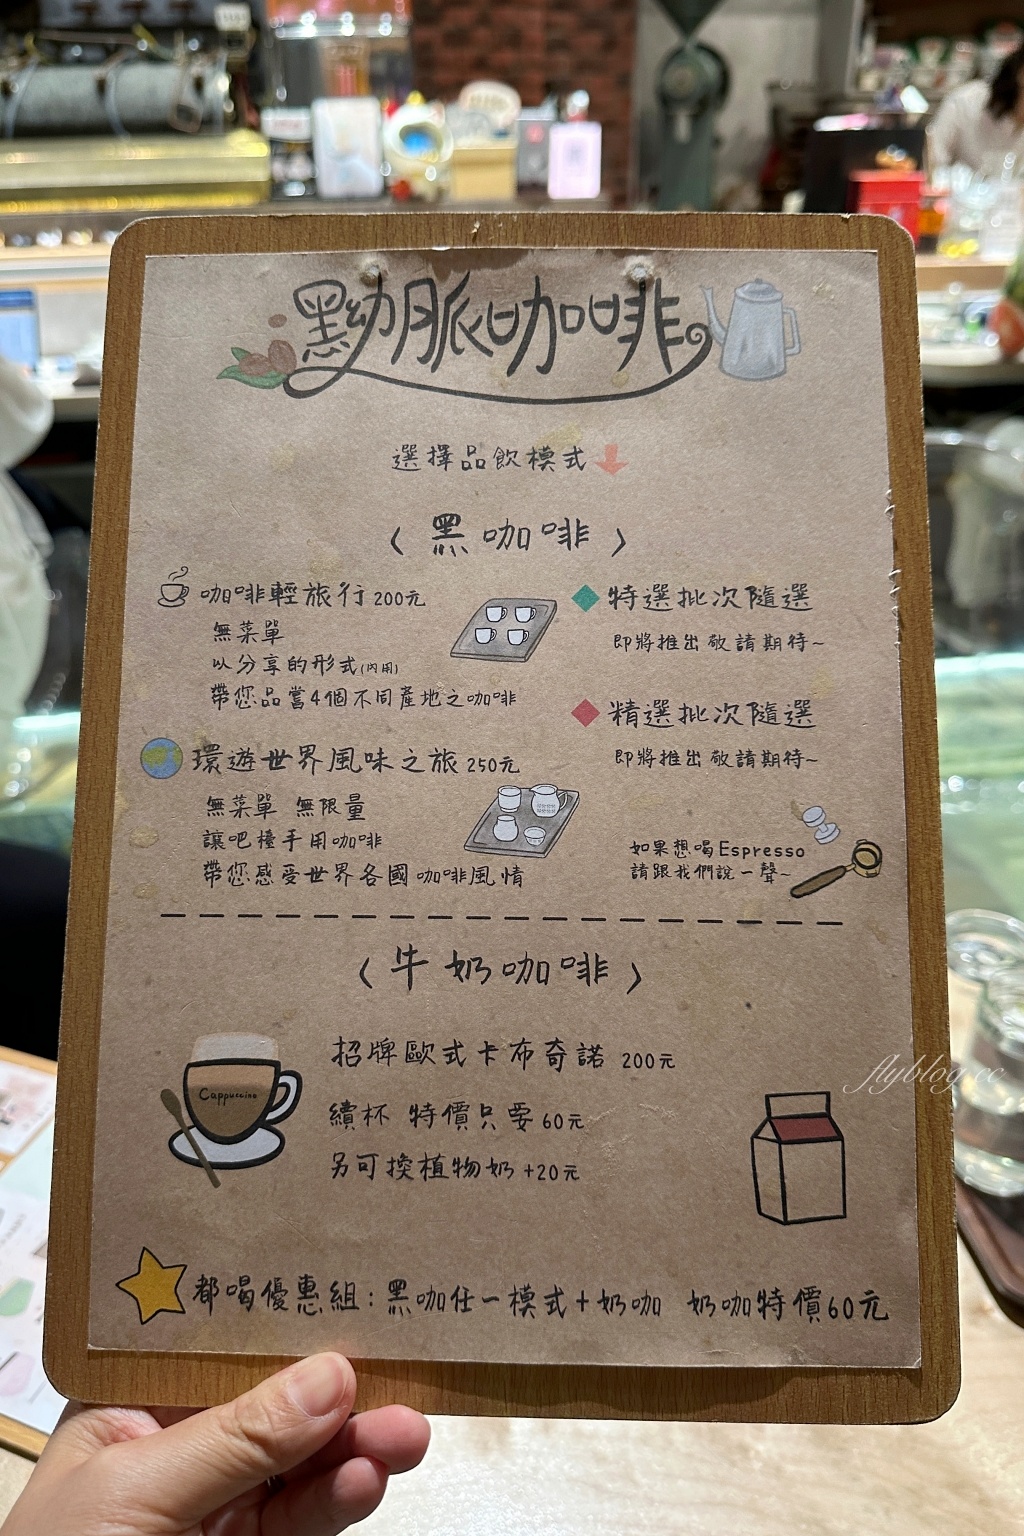 黝脈咖啡
選擇品飲模式
〈黑咖啡〉
咖啡輕旅行 200元
無菜單
以分享的形式(內用)
帶您品嘗4個不同產地之咖啡
環遊世界風味之旅 250元
無菜單 無限量
讓吧檯手用咖啡
帶您感受世界各國咖啡風情
特選批次隨選
即將推出 敬請期待~
精選批次隨選
即將推出 敬請期待~
如果想喝Espresso
請跟我們說一聲~
〈牛奶咖啡〉
Cappuccino
招牌歐式卡布奇諾 200元
續杯 特價只要60元
另可換植物奶 +20元
都喝優惠組:黑咖任一模式+奶咖 奶咖特價60元
flyblog.cc